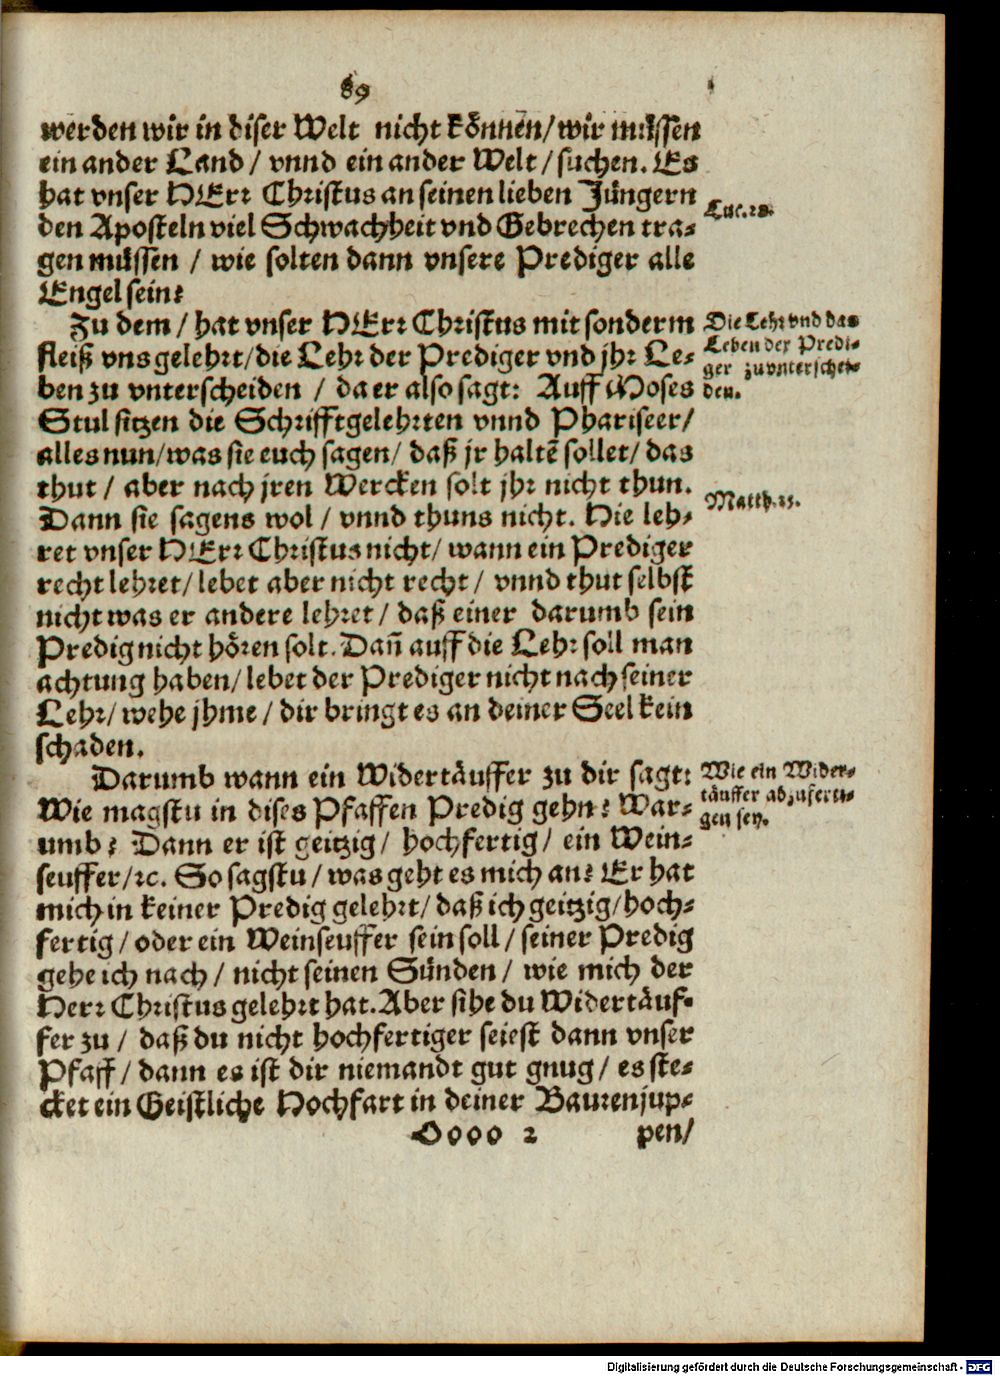 89
werden wir in diser Welt nicht können/ wir müssen
ein ander Land/ vnnd ein ander Welt/ suchen. Es
hat vnser HErr Christus an seinen lieben Jüngern
den Aposteln viel Schwachheit vnd Gebrechen tra-
gen müssen / wie solten dann vnsere Prediger alle
Engel sein?
Luc.
Zu dem / hat vnser HErr Christus mit sonderm
fleiß vns gelehrt/ die Lehr der Prediger vnd jhr Le-
ben zu vnterscheiden / da er also sagt: Auff Moses
Stul sitzen die Schrifftgelehrten vnnd Phariseer/
alles nun/ was sie euch sagen/ daß jr haltẽ sollet/ das
thut / aber nach jren Wercken solt jhr nicht thun.
Dann sie sagens wol / vnnd thuns nicht. Hie leh-
ret vnser HErr Christus nicht/ wann ein Prediger
recht lehret/ lebet aber nicht recht / vnnd thut selbst
nicht was er andere lehret / daß einer darumb sein
Predig nicht hören solt. Dañ auff die Lehr soll man
achtung haben/ lebet der Prediger nicht nach seiner
Lehr/ wehe jhme / dir bringt es an deiner Seel kein
schaden.
Die Lehr vnd das
Leben der Predi-
ger zu vnterschei-
den.
Matth. 23.
Darumb wann ein Widertäuffer zu dir sagt:
Wie magstu in dises Pfaffen Predig gehn? War-
umb? Dann er ist geitzig/ hochfertig/ ein Wein-
seuffer/ ꝛc. So sagstu / was geht es mich an? Er hat
mich in keiner Predig gelehrt/ daß ich geitzig/ hoch-
fertig / oder ein Weinseuffer sein soll / seiner Predig
gehe ich nach / nicht seinen Sünden / wie mich der
Herr Christus gelehrt hat. Aber sihe du Widertäuf-
fer zu / daß du nicht hochfertiger seiest dann vnser
Pfaff / dann es ist dir niemandt gut gnug / es ste-
cket ein Geistliche Hochfart in deiner Baurenjup-
Wie ein Wider-
täuffer abzuferti-
gen sey.
Oooo 2 pen/
Digitalisierung gefördert durch die Deutsche Forschungsgemeinschaft - DFG